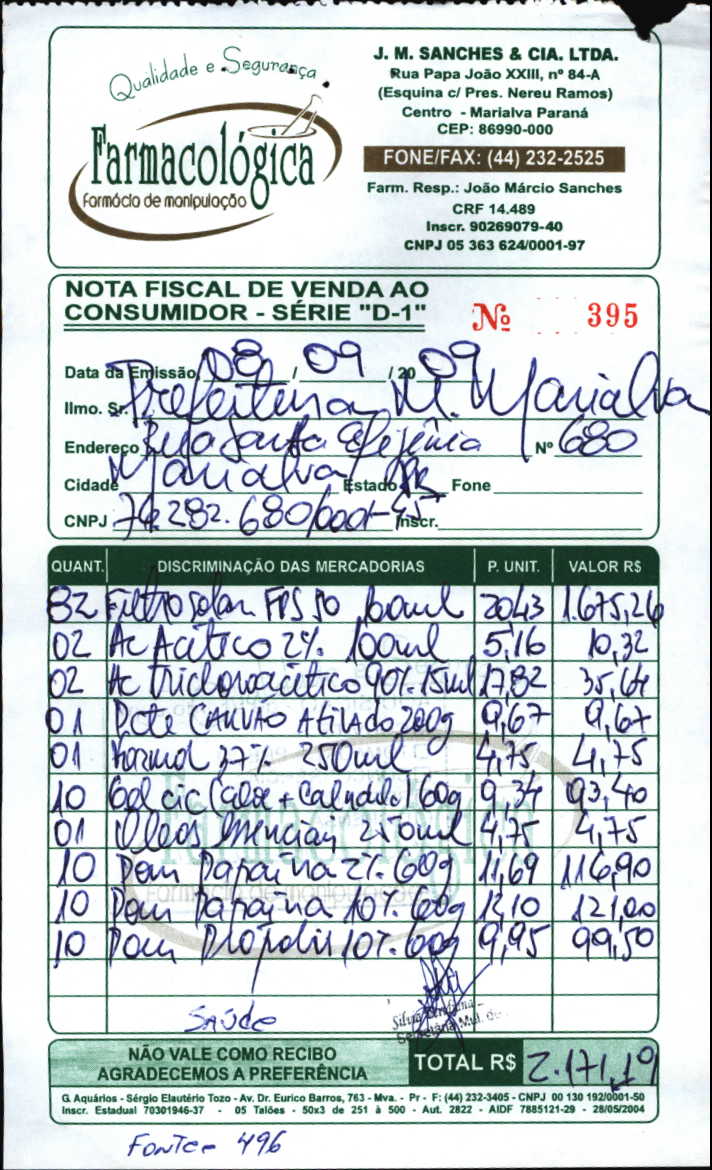 Qualidade e Segurança
Farmacológica
Farmácia de manipulação
J. M. SANCHES & CIA. LTDA.
Rua Papa João XXIII, nº 84-A
(Esquina c/ Pres. Nereu Ramos)
Centro - Marialva Paraná
CEP: 86990-000
FONE/FAX: (44) 232-2525
Farm. Resp.: João Márcio Sanches
CRF 14.489
Inscr. 90269079-40
CNPJ 05 363 624/0001-97
NOTA FISCAL DE VENDA AO
CONSUMIDOR - SÉRIE "D-1"
Nº 395
Data da Emissão 08 / 09 / 20 09
Ilmo. Sr. Prefeitura M. Marialva
Endereço Rua Santa Efigênia Nº 680
Cidade Marialva Estado PR Fone
CNPJ 76.282.680/0001-45 Inscr.
QUANT. DISCRIMINAÇÃO DAS MERCADORIAS P. UNIT. VALOR R$
82 Filtro solar FPS 50 60ml 20,43 1.675,26
02 Ac Acético 2% 100ml 5,16 10,32
02 Ac tricloroacético 90% 15ml 17,82 35,64
01 Pote CARVÃO Ativado 200g 9,67 9,67
01 Formol 37% 250ml 4,75 4,75
10 Gel cic (Aloe + Calendula) 60g 9,34 93,40
01 Óleos Essenciais 250ml 4,75 4,75
10 Pom Papaína 2% 60g 11,69 116,90
10 Pom Papaína 10% 60g 12,10 121,00
10 Pom Própolis 10% 60g 9,95 99,50
SAÚDE
NÃO VALE COMO RECIBO
AGRADECEMOS A PREFERÊNCIA
TOTAL R$ 2.171,19
G. Aquários - Sérgio Elautério Tozo - Av. Dr. Eurico Barros, 763 - Mva. - Pr - F: (44) 232-3405 - CNPJ 00 130 192/0001-50
Inscr. Estadual 70301946-37 - 05 Talões - 50x3 de 251 à 500 - Aut. 2822 - AIDF 7885121-29 - 28/05/2004
FONTE - 496